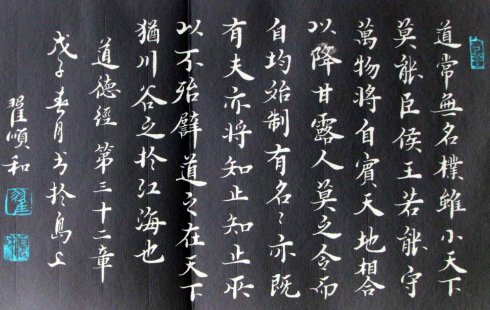 道常無名樸雖小天下
莫能臣侯王若能守
萬物將自賓天地相合
以降甘露人莫之令而
自均始制有名〻亦既
有夫亦將知止知止所
以不殆譬道之在天下
猶川谷之於江海也
道德經第三十二章
戊子春月书於島上
翟順和